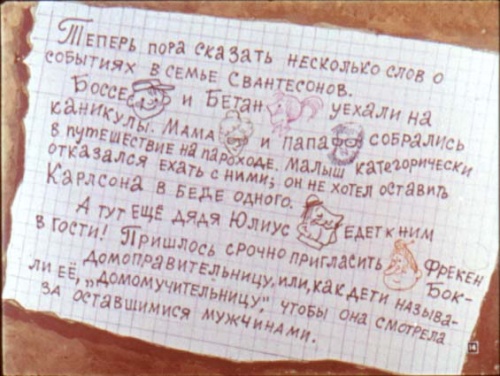 Теперь пора сказать несколько слов о
событиях в семье Свантесонов.
Боссе и Бетан уехали на
каникулы. Мама и папа собрались
в путешествие на пароходе. Малыш категорически
отказался ехать с ними; он не хотел оставить
Карлсона в беде одного.
А тут ещё дядя Юлиус едет к ним
в гости! Пришлось срочно пригласить Фрекен Бок-
домоправительницу, или, как дети называ-
ли её, „домомучительницу", чтобы она смотрела
за оставшимися мужчинами.
14